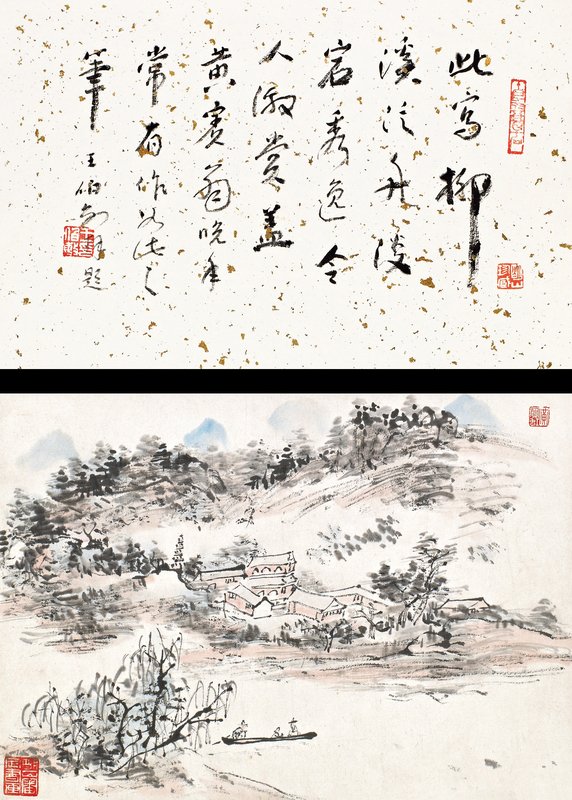 此寫柳
溪泛舟
宕秀逸令
人激賞蓋
黃賓翁晚年
常有作如此之
筆
王伯敏拜題